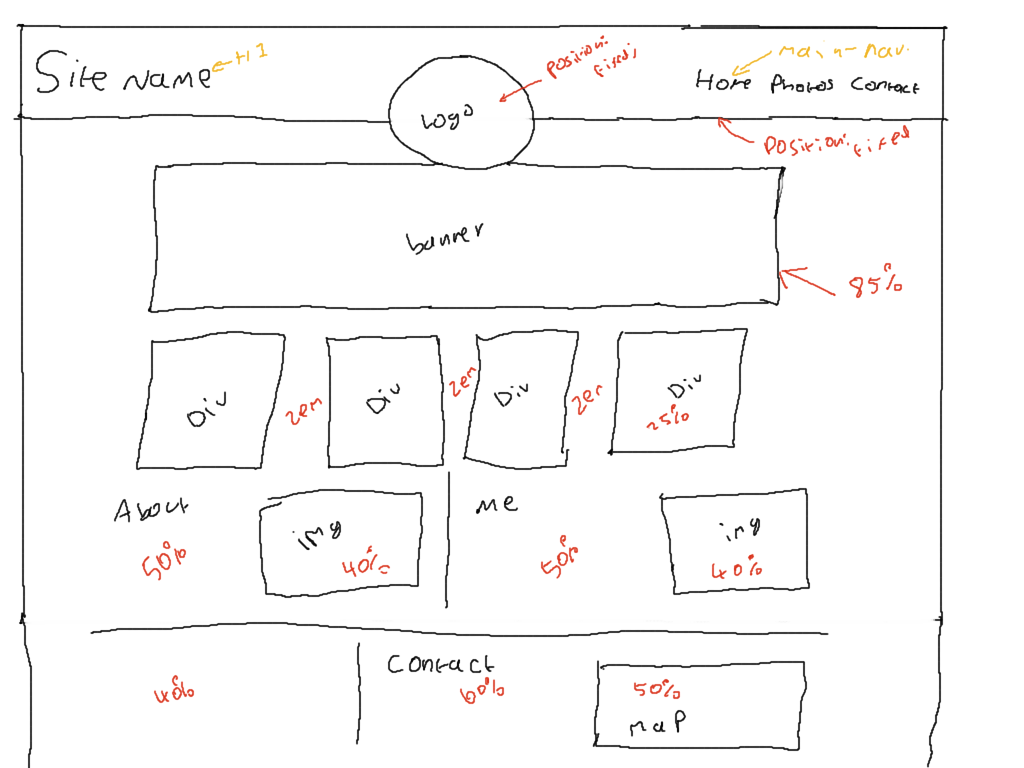 Site Name
H1
Logo
Position: fixed;
main-nav.
Home Photos Contact
Position: fixed
banner
85%
Div
2em
Div
2em
Div
2em
Div
25%
About
50%
img
40%
Me
50%
img
40%
40%
Contact
60%
50%
map